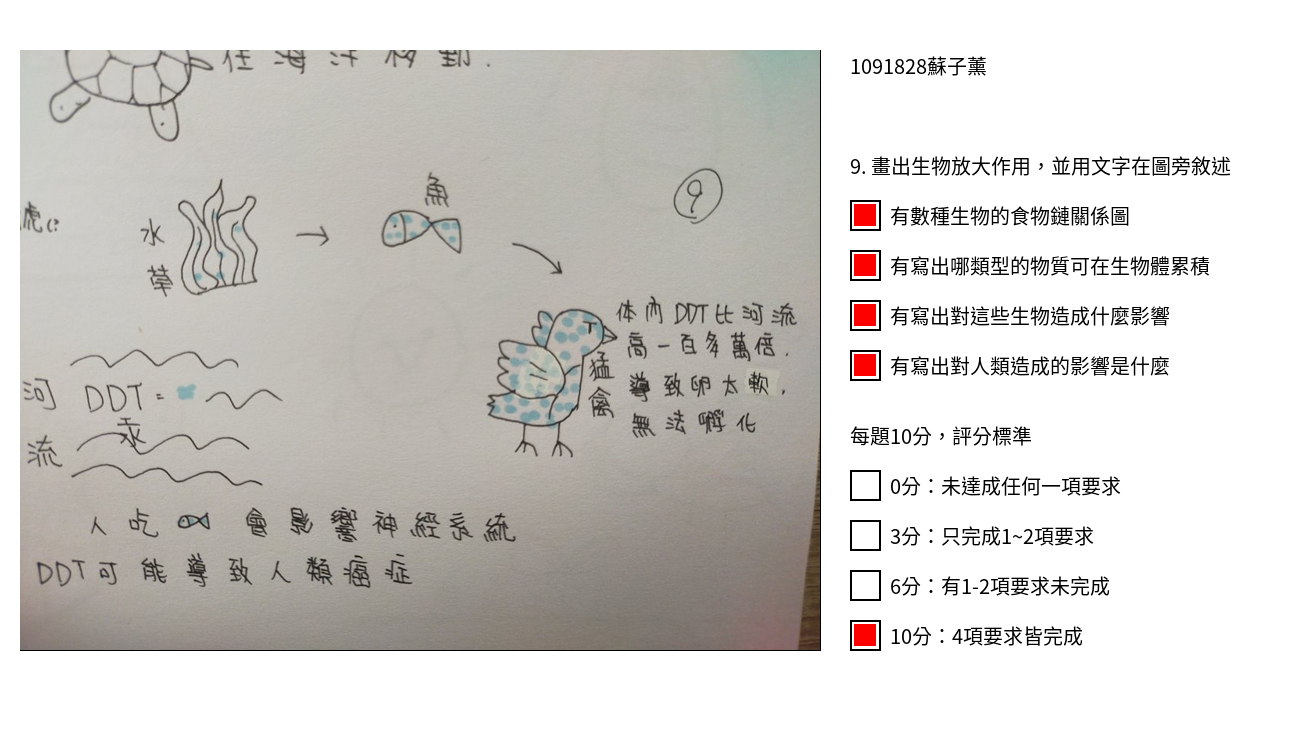 在海洋移動.
⑨
魚
水
草
虎
体內DDT比河流
高一百多萬倍.
導致卵太軟.
無法孵化
猛
禽
河
流
DDT=
汞
人吃會影響神經系統
DDT可能導致人類癌症
1091828蘇子薰
9. 畫出生物放大作用，並用文字在圖旁敘述
有數種生物的食物鏈關係圖
有寫出哪類型的物質可在生物體累積
有寫出對這些生物造成什麼影響
有寫出對人類造成的影響是什麼
每題10分，評分標準
0分：未達成任何一項要求
3分：只完成1~2項要求
6分：有1-2項要求未完成
10分：4項要求皆完成